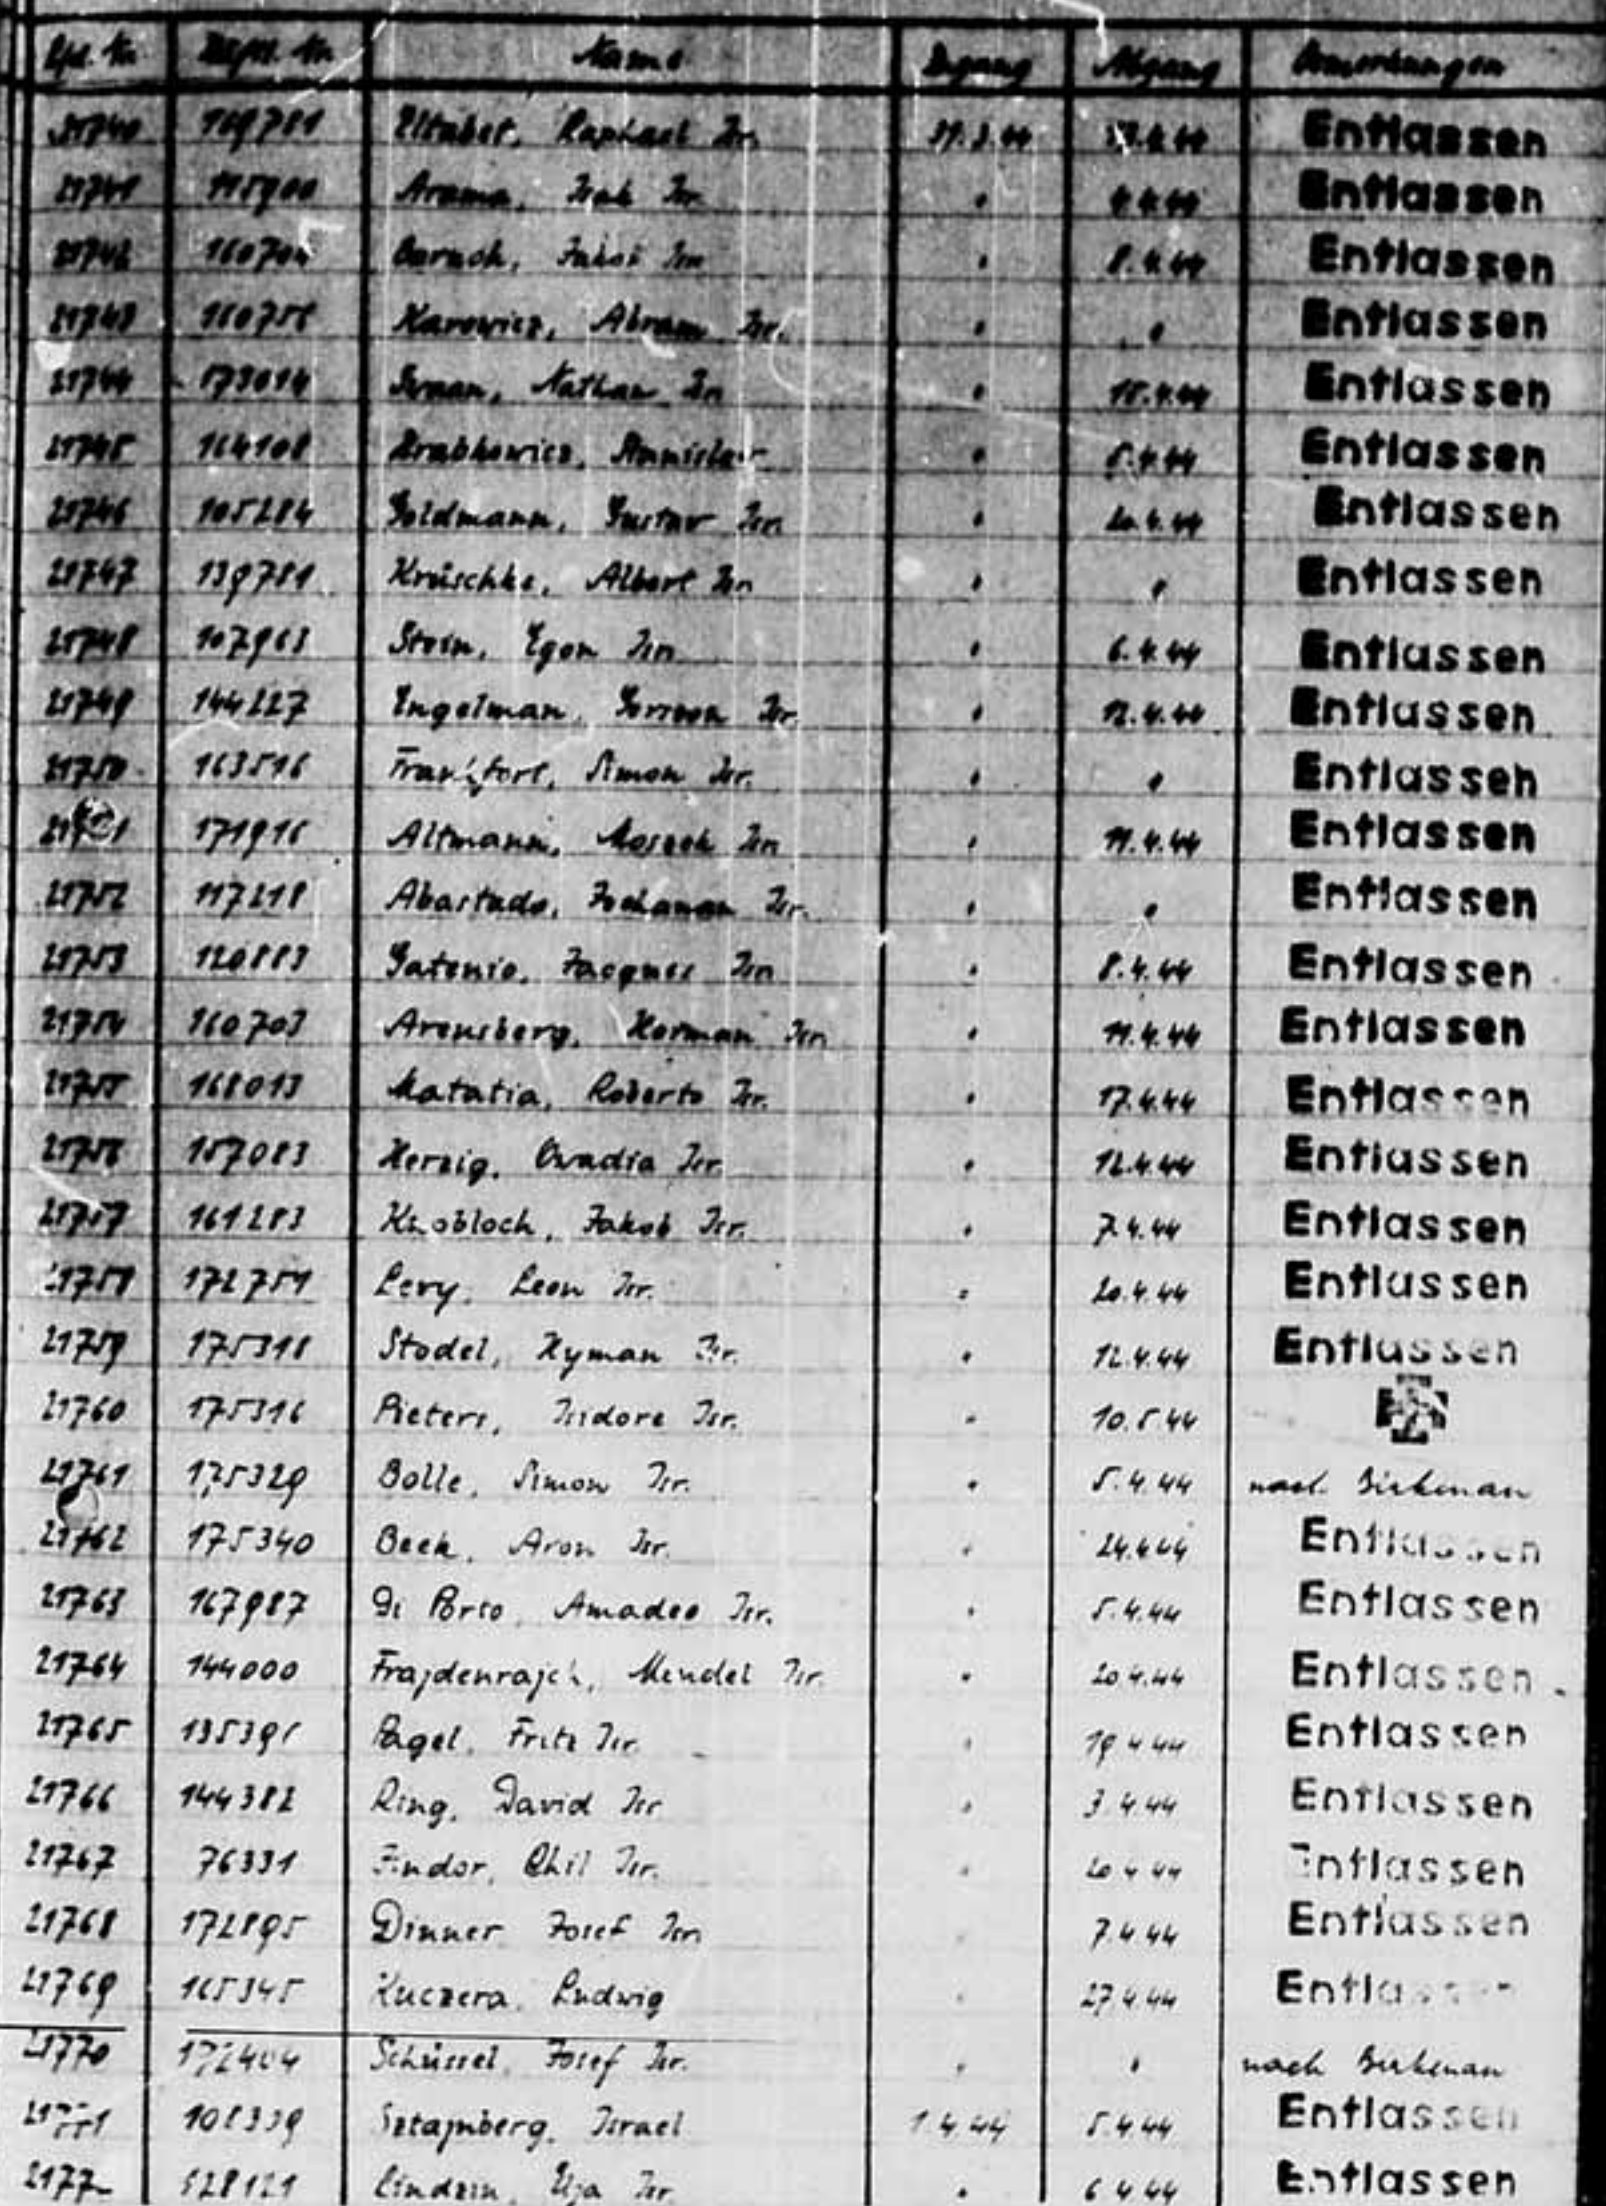 Lfd. Nr. Name Zugang Abgang Bemerkungen
21740 Raphael Isr. 31.3.44 Entlassen
21741 Arama, Isak Isr. " 4.4.44 Entlassen
21742 Baruch, Jakob Isr. " 8.4.44 Entlassen
21743 Abram Isr. " " Entlassen
21744 173014 Nathan Isr. " Entlassen
21745 164108 " 5.4.44 Entlassen
21746 105284 Goldmann, Gustav Isr. " 20.4.44 Entlassen
21747 139781 Krüschke, Albert Isr. " " Entlassen
21748 107963 Stein, Egon Isr. " 6.4.44 Entlassen
21749 144227 Engelman, Isr. " 12.4.44 Entlassen
21750 163516 Frankfort, Simon Isr. " " Entlassen
171916 Altmann, Moszek Isr. " 11.4.44 Entlassen
21752 117218 Abastado, Isr. " " Entlassen
21753 120883 Gatenio, Jacques Isr. " 8.4.44 Entlassen
21754 160703 Arensberg, Herman Isr. " 11.4.44 Entlassen
21755 168013 Matatia, Roberto Isr. " 17.4.44 Entlassen
21756 157083 Herzig, Ovadia Isr. " 12.4.44 Entlassen
21757 161283 Knobloch, Jakob Isr. " 7.4.44 Entlassen
21758 172751 Levy, Leon Isr. " 20.4.44 Entlassen
21759 175318 Stodel, Hyman Isr. " 12.4.44 Entlassen
21760 175316 Pieters, Isidore Isr. " 10.5.44
21761 175329 Bolle, Simon Isr. " 5.4.44 nach Birkenau
21762 175340 Beek, Aron Isr. " 24.4.44 Entlassen
21763 167987 Di Porto, Amadeo Isr. " 5.4.44 Entlassen
21764 144000 Frajdenrajch, Mendel Isr. " 20.4.44 Entlassen
21765 Pagel, Fritz Isr. " 19.4.44 Entlassen
21766 144382 Ring, David Isr. " 3.4.44 Entlassen
21767 76331 Chil Isr. " 20.4.44 Entlassen
21768 172895 Dinner Josef Isr. " 7.4.44 Entlassen
21769 165345 Kuczera, Ludwig " 27.4.44 Entlassen
21770 172404 Schüssel, Josef Isr. " " nach Birkenau
21771 108339 Sztajnberg, Israel 1.4.44 5.4.44 Entlassen
128121 Isr. " 6.4.44 Entlassen